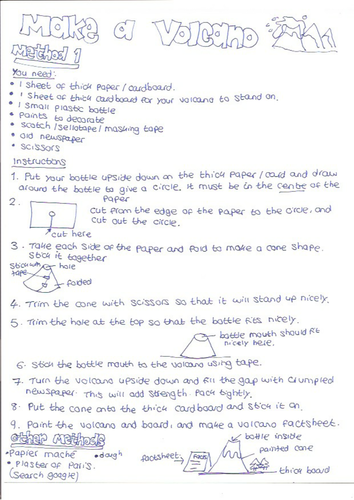 Make a Volcano
Method 1
You need:
• 1 sheet of thick paper/cardboard.
• 1 sheet of thick cardboard for your volcano to stand on.
• 1 small plastic bottle
• paints to decorate
• scotch/sellotape/masking tape
• old newspaper
• scissors
Instructions
1. Put your bottle upside down on the thick paper/card and draw
around the bottle to give a circle. It must be in the centre of the
paper
2.
cut from the edge of the paper to the circle, and
cut out the circle.
cut here
3. Take each side of the paper and fold to make a cone shape.
Stick it together
stick with
tape
hole
folded
4. Trim the cone with scissors so that it will stand up nicely.
5. Trim the hole at the top so that the bottle fits nicely.
bottle mouth should fit
nicely here.
6. Stick the bottle mouth to the volcano using tape.
7. Turn the volcano upside down and fill the gap with crumpled
newspaper. This will add strength. Pack tightly.
8. Put the cone onto the thick cardboard and stick it on.
9. Paint the volcano and board, and make a volcano factsheet.
Other Methods
• Papier maché • dough
• Plaster of Paris.
(Search google)
factsheet
Facts
bottle inside
painted cone
thick board